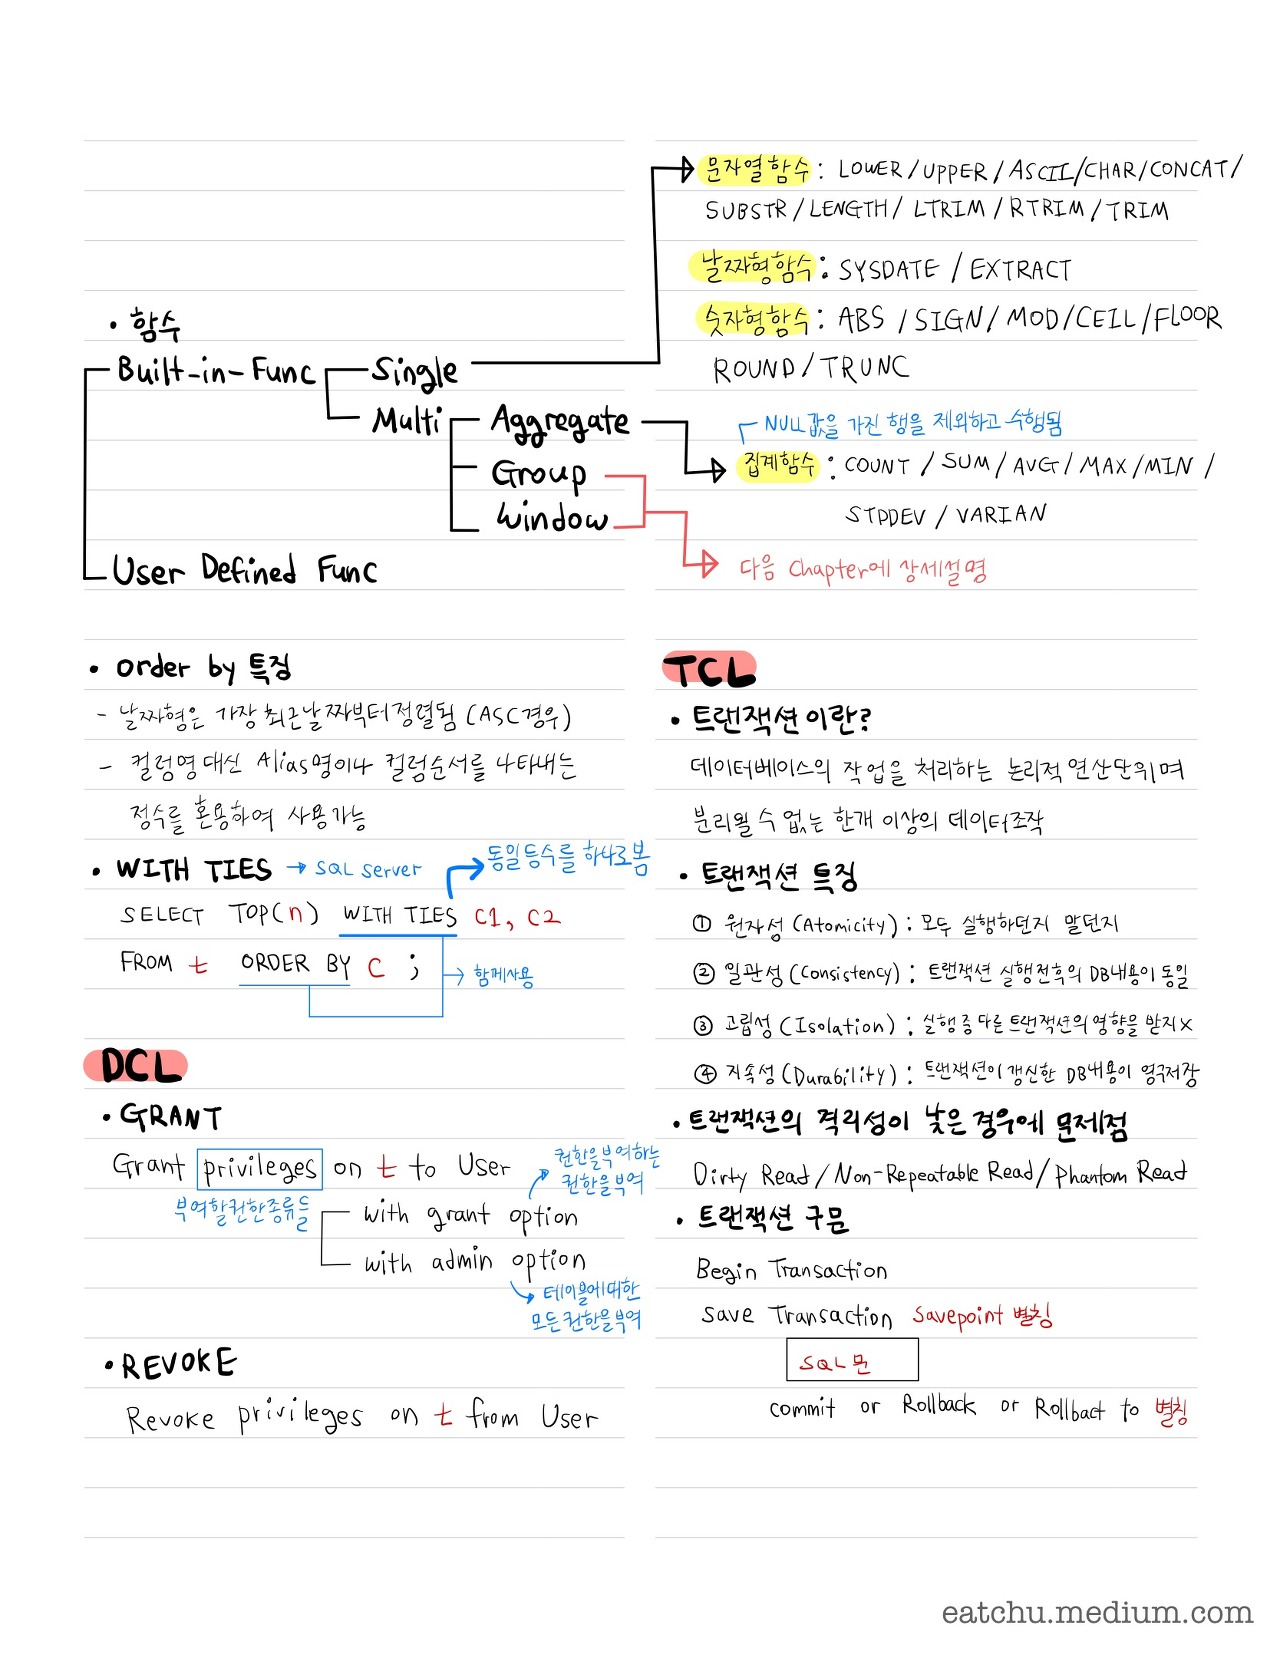 • 함수
Built-in-Func
Single
Multi
Aggregate
Group
Window
User Defined Func
문자열함수 : LOWER / UPPER / ASCII / CHAR / CONCAT /
SUBSTR / LENGTH / LTRIM / RTRIM / TRIM
날짜형함수 : SYSDATE / EXTRACT
숫자형함수 : ABS / SIGN / MOD / CEIL / FLOOR
ROUND / TRUNC
NULL값을 가진 행을 제외하고 수행됨
집계함수 : COUNT / SUM / AVG / MAX / MIN /
STDDEV / VARIAN
다음 Chapter에 상세설명
• order by 특징
- 날짜형은 가장 최근날짜부터 정렬됨 (ASC경우)
- 컬럼명 대신 Alias명이나 컬럼순서를 나타내는
정수를 혼용하여 사용가능
• WITH TIES → SQL server
동일등수를 하나로봄
SELECT TOP(n) WITH TIES C1, C2
FROM t ORDER BY C ;
함께사용
DCL
• GRANT
Grant privileges on t to User
권한을부여하는
권한을부여
부여할권한종류들
with grant option
with admin option
테이블에대한
모든권한을부여
• REVOKE
Revoke privileges on t from User
TCL
• 트랜잭션이란?
데이터베이스의 작업을 처리하는 논리적 연산단위며
분리될 수 없는 한개 이상의 데이터조작
• 트랜잭션 특징
① 원자성 (Atomicity) : 모두 실행하던지 말던지
② 일관성 (Consistency) : 트랜잭션 실행전후의 DB내용이 동일
③ 고립성 (Isolation) : 실행중 다른 트랜잭션의 영향을 받지 X
④ 지속성 (Durability) : 트랜잭션이 갱신한 DB내용이 영구저장
• 트랜잭션의 격리성이 낮은 경우에 문제점
Dirty Read / Non-Repeatable Read / Phantom Read
• 트랜잭션 구문
Begin Transaction
Save Transaction Savepoint 별칭
SQL문
commit or Rollback or Rollbact to 별칭
eatchu.medium.com